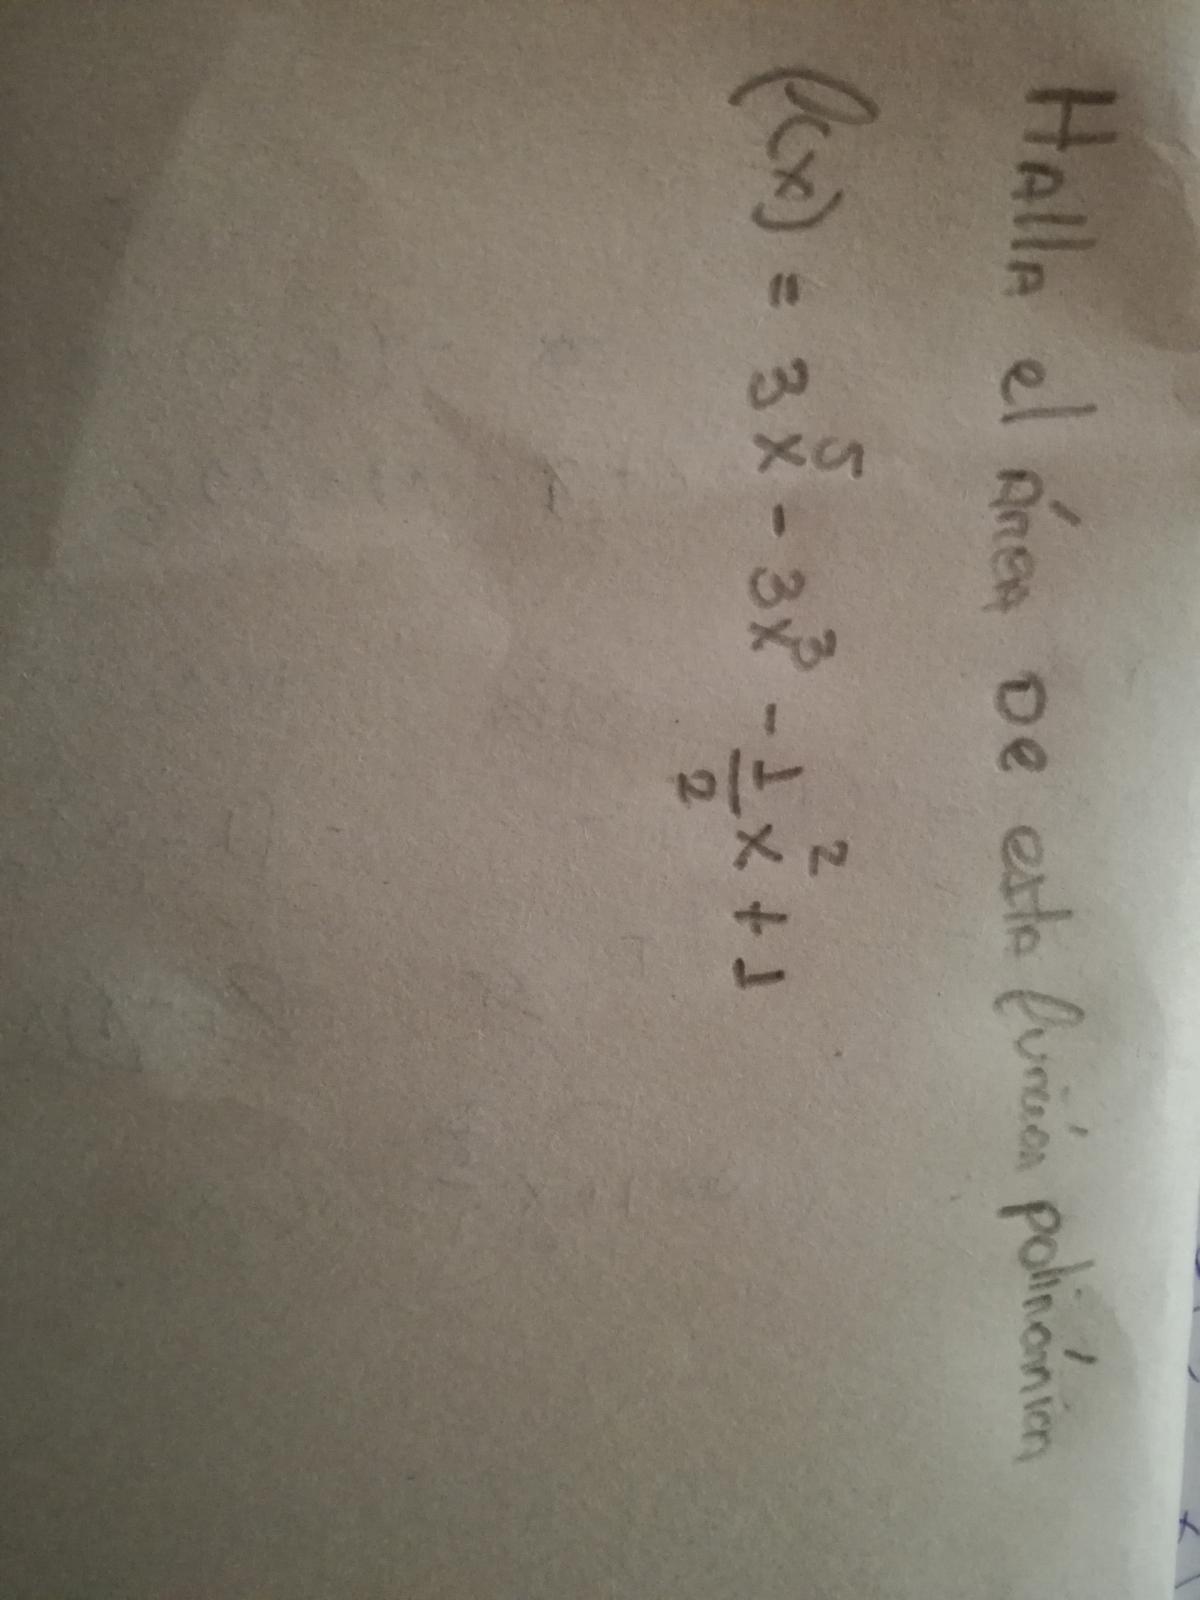 Halla el área de esta función polinómica
f(x) = 3x⁵ - 3x³ - 1/2 x² + 1